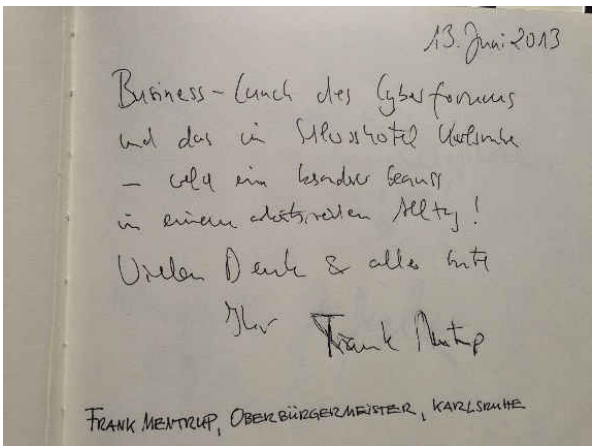 13. Juni 2013
Business-Lunch des Cyberforums
und das im Schlosshotel Karlsruhe
– welch ein besonderer Genuss
in einem arbeitsreichen Alltag!
Vielen Dank & alles Gute
Ihr Frank Mentrup
FRANK MENTRUP, OBERBÜRGERMEISTER, KARLSRUHE